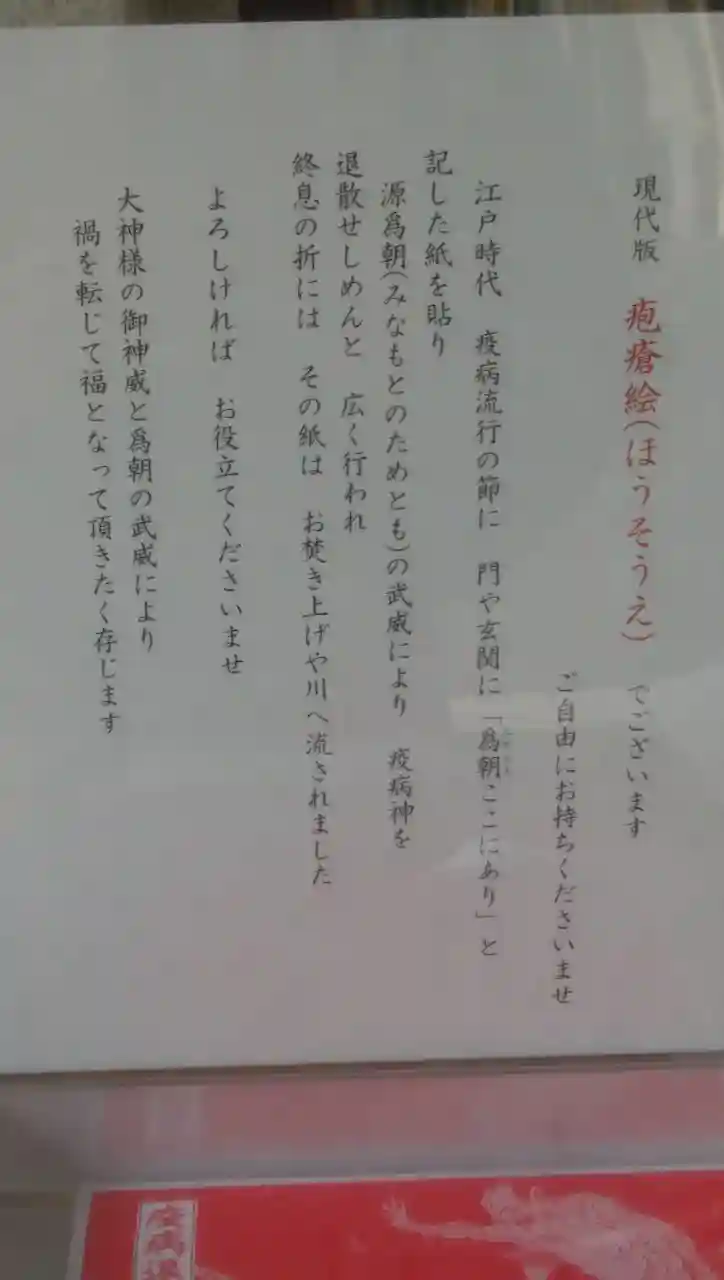 現代版 疱瘡絵(ほうそうえ) でございます
ご自由にお持ちくださいませ
江戸時代 疫病流行の節に 門や玄関に「爲朝ここにあり」と
記した紙を貼り
源爲朝(みなもとのためとも)の武威により 疫病神を
退散せしめんと 広く行われ
終息の折には その紙は お焚き上げや川へ流されました
よろしければ お役立てくださいませ
大神様の御神威と爲朝の武威により
禍を転じて福となって頂きたく存じます